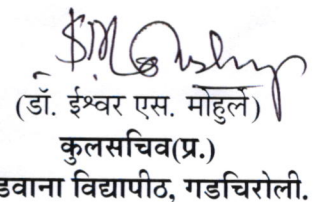 (डॉ. ईश्वर एस. मोहुर्ले)
कुलसचिव(प्र.)
डवाना विद्यापीठ, गडचिरोली.